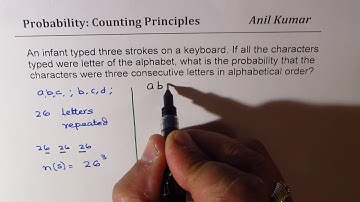 Probability: Counting Principles Anil Kumar
An infant typed three strokes on a keyboard. If all the characters
typed were letter of the alphabet, what is the probability that the
characters were three consecutive letters in alphabetical order?
a,b,c, ; b,c,d ;
a b
26 letters
repeated
26 26 26
n(s) = 26³